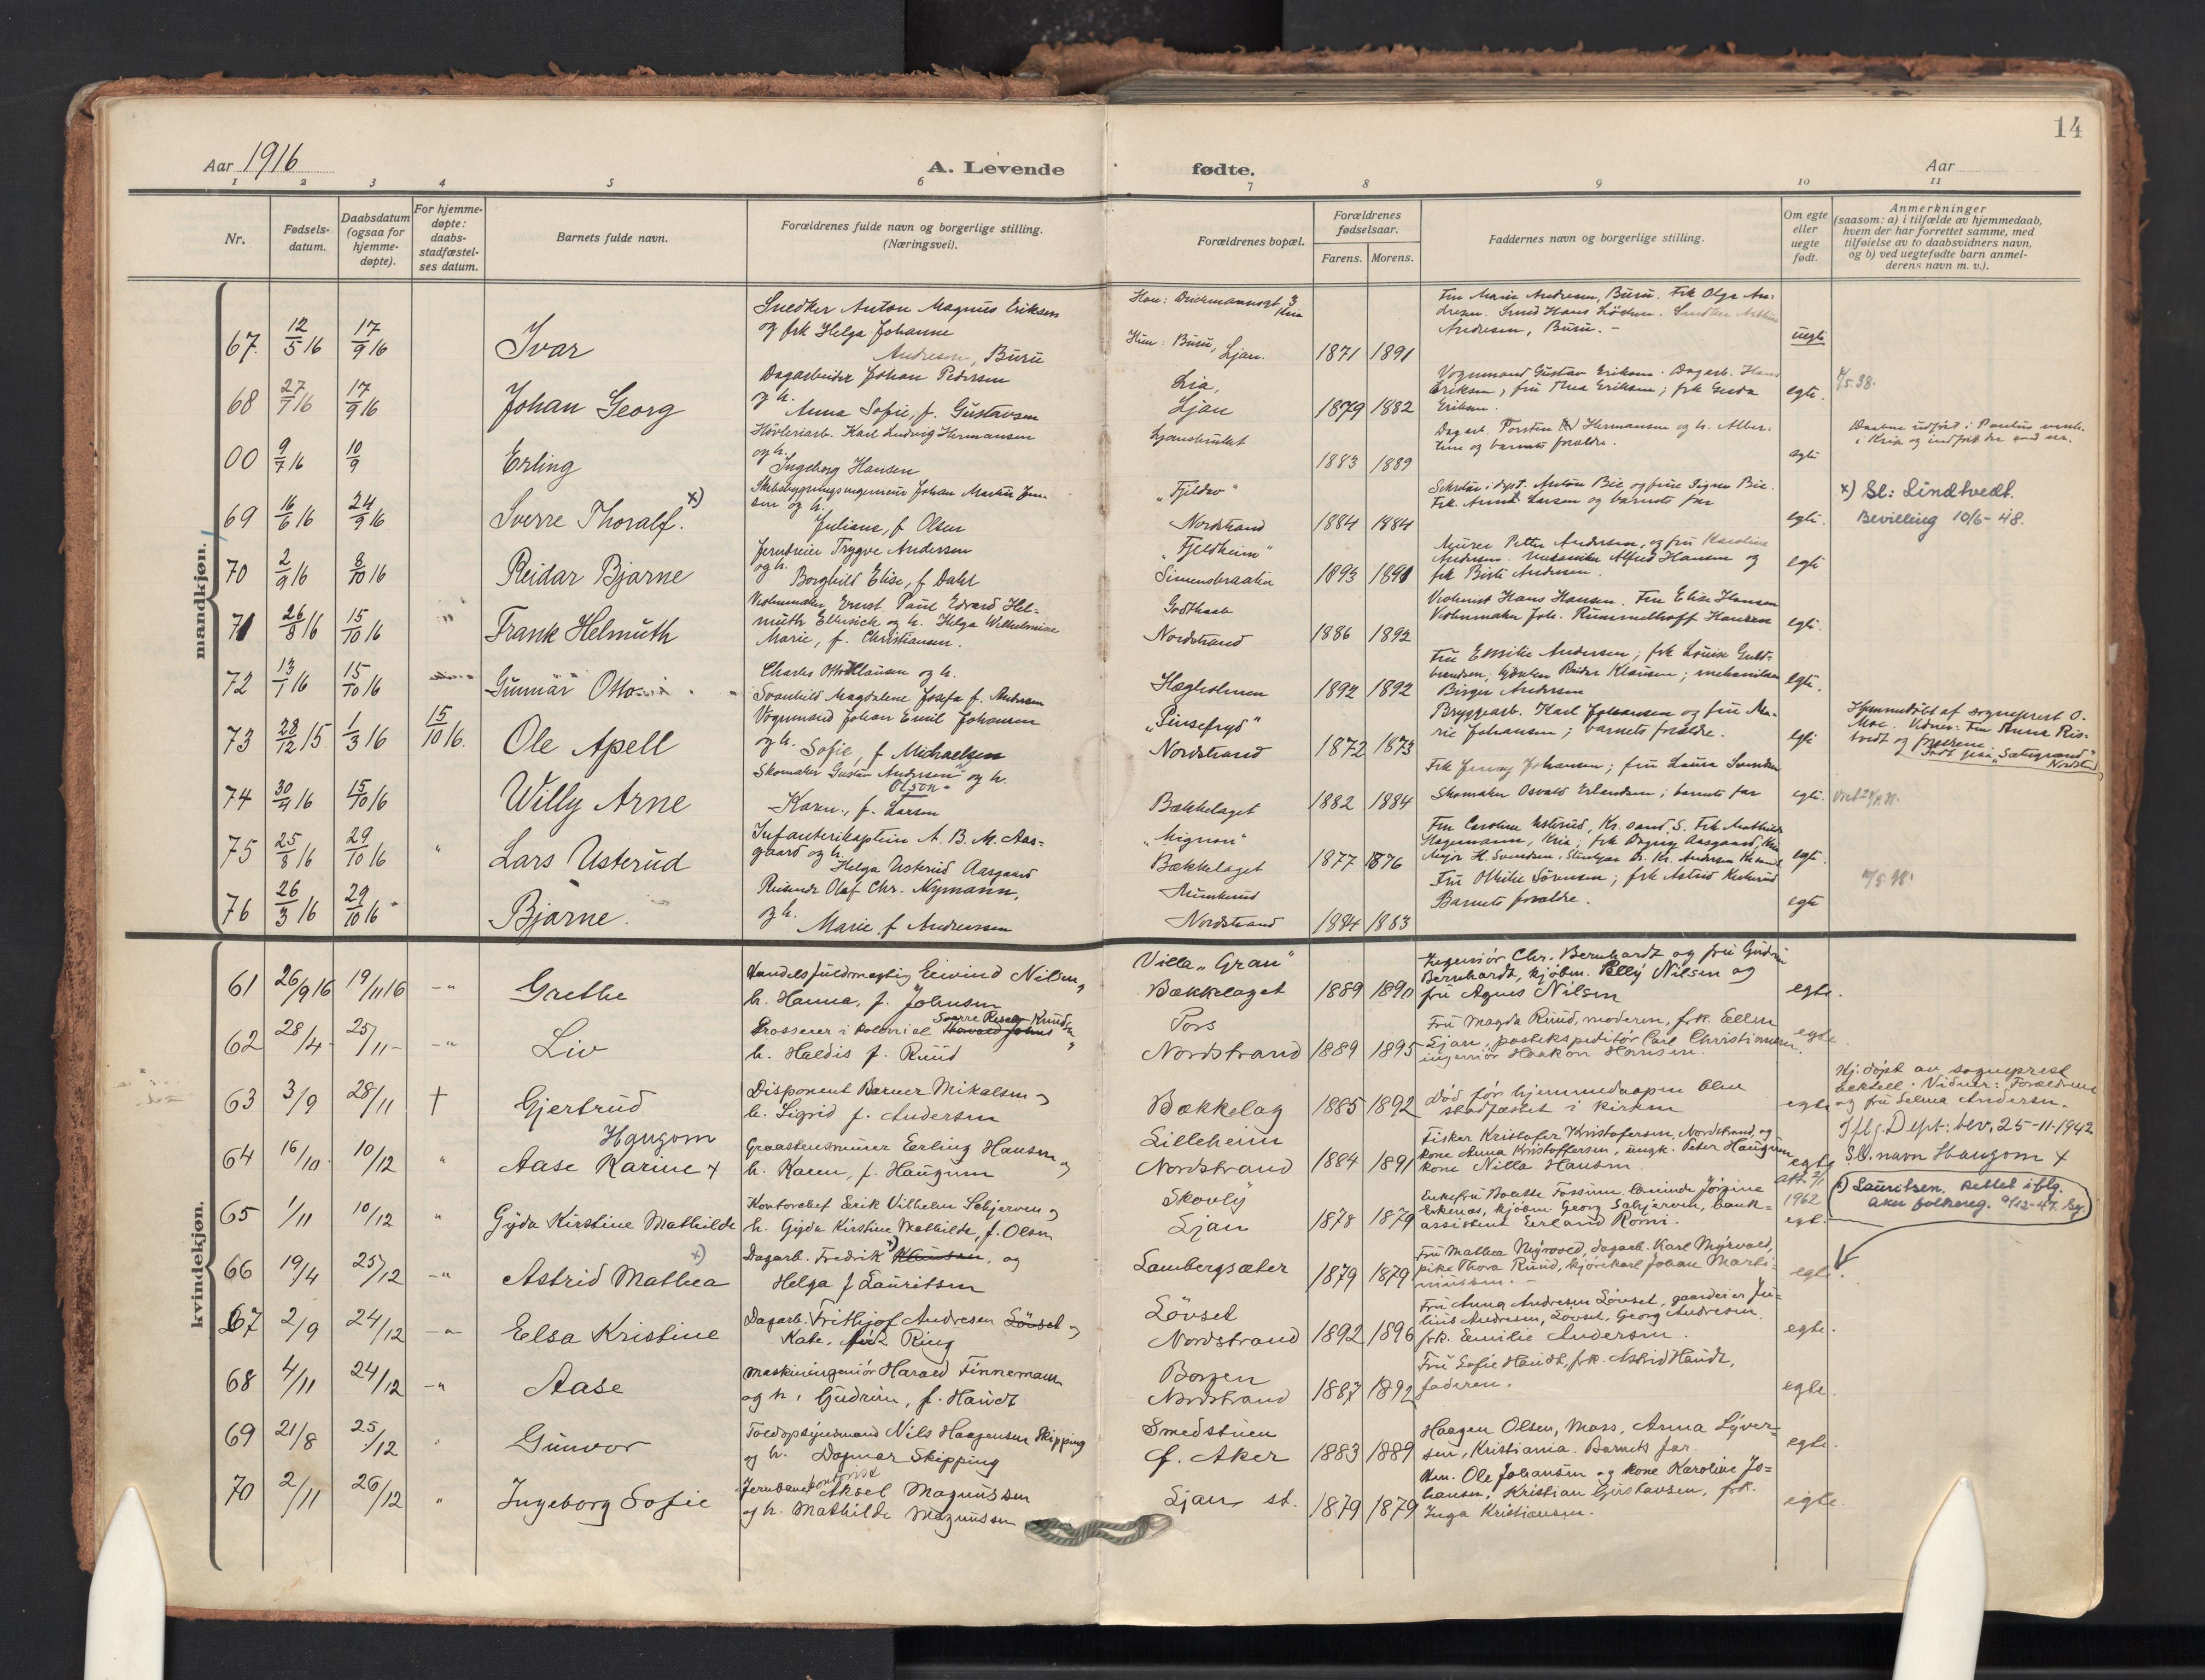 14
Aar 1916
A. Levende fødte.
Aar
1 2 3 4 5 6 7 8 9 10 11
Nr.
Fødsels-
datum.
Daabsdatum
(ogsaa for
hjemme-
døpte).
For hjemme-
døpte:
daabs-
stadfæstel-
ses datum.
Barnets fulde navn.
Forældrenes fulde navn og borgerlige stilling.
(Næringsvei).
Forældrenes bopæl.
Forældrenes
fødselsaar.
Farens. Morens.
Faddernes navn og borgerlige stilling.
Om egte
eller
uegte
født.
Anmerkninger
(saasom: a) i tilfælde av hjemmedaab,
hvem der har forrettet samme, med
tilføielse av to daabsvidners navn,
og b) ved uegtefødte barn anmel-
derens navn m. v.).
mandkjøn.
67. 12/5 16 17/9 16 Ivar
Snedker Anton Magnus Eriksen
og frk Helga Johanne
Andresen, Buru
Hun: Buru, Ljan.
1871 1891
Fru Marie Andresen, Buru. Frk Olga An-
Andresen, Buru. -
uegte
68 27/7 16 17/9 16 Johan Georg
Dagarbeider Johan Pedersen
og h.
Anna Sofie, f. Gustavsen
Lia,
Ljan
1879 1882
Vognmand Gustav Eriksen. Dagarb. Hans
Eriksen; fru Thea Eriksen; frk Gerda
Eriksen.
egte.
00 9/7 16 10/9 Erling
Høvleriarb. Karl Ludvig Hermansen
og h.
Ingeborg Hansen
1883 1889
Dagarb. Torsten Hermansen og h. Alber-
tine og barnets forældre.
egte
69 16/6 16 24/9 16 Sverre Thoralf. x)
Skibsbygningsingeniør Johan Martin Jen-
sen og h.
Juliane, f Olsen
"Fjeldbo"
Nordstrand
1884 1884
Frk. Anna Larsen og barnets far
egte.
x) Sl: Lindtvedt.
Bevilling 10/6-48.
70 2/9 16 8/10 16 Reidar Bjarne
Jerndreier Trygve Andersen
og h.
Borghild Elise, f Dahl
"Fjeldheim"
Simensbraaten
1893 1891
Murer Petter Andersen, og fru Karoline
Andersen. Mekaniker Alfred Hansen og
frk Birte Andersen.
egte
71 26/8 16 15/10 16 " Frank Helmuth
Violinmaker Ernst Paul Edvard Hel-
muth Ellersieck og h. Helga Wilhelmine
Marie, f. Christiansen.
Godthaab
Nordstrand
1886 1892
Violinist Hans Hansen. Fru Elise Hansen
Violinmaker Joh. Rummelhoff Hansen
egte.
72 13/1 16 15/10 16 Gunnar Otto
Charles Otto Klausen og h.
Svanhild Magdalene Josefa f. Andersen
Hægholmen
1892 1892
Fru Emilie Andersen; frk Louise Guld-
brandsen; Reidar Klausen; mekaniker
Birger Andersen
egte.
73 28/12 15 1/3 16 15/10 16. Ole Apell
Vognmand Johan Emil Johansen
og h. Sofie, f Michaelsen
"Pinsefryd"
Nordstrand
1872 1873
Bryggearb. Karl Johansen og fru Ma-
rie Johansen; barnets forældre.
egte
Hjemmedøbt af sogneprest O.
Moe. Vidner: Fru Anna Ris-
tvedt og forældrene.
74 16 15/10 16 Willy Arne
Skomaker Gustav Andersen og h.
Olson
Karn., f. Larsen
Bækkelaget
1882 1884
Frk Jenny Johansen; fru Laura Svendsen
Skomaker Osvald Erlandsen; barnets far
egte.
75 25/8 16 29/10 16 " Lars Usterud
Infanterikaptein A. B. M. Aas-
gaard og h.
Helga Usterud Aasgaard
"Mignon"
Bækkelaget
1877 1876
Fru Caroline Usterud, Kr.sand S. Frk Mathilde
egte.
76 26/3 16 29/10 16 Bjarne.
Reisende Olaf Chr. Nymann,
og h.
Marie f Andreassen
Munkerud
Nordstrand
1884 1883
Fru Othilie Sørensen; frk Astrid
Barnets forældre.
egte
kvindekjøn.
61 26/9 16 19/11 16 -"- Grethe
Handelsfuldmægtig Eivind Nilsen,
h. Hanna, f. Johnsen
Villa "Gran"
Bækkelaget
1889 1890
Ingeniør Chr. Bernhardt og fru Gudrun
Bernhardt, kjøbm. Pelly Nilsen og
fru Agnes Nilsen
egte.
62 28/4- 25/11- -"- Liv
Sverre Resely Knudsen
Grosserer i kolonial
h. Haldis f. Ruud
Pors
Nordstrand
1889 1895
Fru Magda Ruud, moderen, frk. Ellen
Ljan, postekspeditør Carl Christiansen
ingeniør Haakon Hansen.
egte.
63 3/9 28/11 † Gjertrud
Disponent Barner Mikalsen og
h. Sigrid f. Andersen
Bækkelag
1885 1892
Død før hjemmedaapen blev
stadfæstet i kirken
egte
Hj.døpt av sogneprest
Vidner: Forældrene
og fru Selma Andersen.
64 16/10 10/12 " Haugom
Aase Karine +
Graastensmurer Eerling Hansen og
h. Karen, f. Haugum
Lilleheim
Nordstrand
1884 1891
Fisker Kristofer Kristofersen, Nordstrand og
kone Anna Kristoffersen, ungk. Peter Haugum
kone Nilla Hansen
egte
Iflg. Dept: bev. 25-11-1942
Sl.navn Haugom +
65 1/11 10/12 " Gyda Kirstine Mathilde
Kontorchef Erik Vilhelm Schjerven og
h. Gyda Kirstine Mathilde, f. Olsen
Skovly
Ljan
1878 1879
Enkefru Bolette Fossum, kvinde Jørgine
Eskenæs, kjøbm. Georg Schjerven, bank-
assistent Eerland Romi.
att. 2/1
1962
egte.
x) Lauritsen. Rettet iflg.
Aker folkereg. 9/12-47.
66 19/4 25/12 -"- Astrid Mathea x)
Dagarb. Fredrik x) Klausen, og
Helga f Lauritsen
Lambergsæter
1879 1879
Fru Mathea Myrvold, dagarb. Karl Myrvold,
pike Thora Ruud, kjørekarl Johan Marti-
niussen. -
egte.
67 2/9 24/12 -"- Elsa Kristine
Dagarb. Frithjof Andresen Løvset og
Kate, Ring
Løvset
Nordstrand
1892 1896
Fru Anna Andresen Løvset, gaardeier Ju-
lius Andresen, Løvset, Georg Andresen
frk. Eemilie Andersen.
egte.
68 4/11 24/12 -"- Aase
Maskiningeniør Harald Finnemann
og h. Gudrun, f. Haudt
Borgen
Nordstrand
1887 1892
Fru Sofie Haudt, frk. Astrid Haudt,
faderen.
egte.
69 21/8 25/12 " Gunvor
Toldopsynsmand Nils Haagensen Skipping
og h. Dagmar Skipping
Smedstuen
Ø. Aker
1883 1889
Haagen Olsen, Moss, Anna Syver-
sen, Kristiania. Barnets far.
egte.
70 2/11 26/12 " Ingeborg Sofie
kontorist
Jernbane Aksel Magnussen
og h. Mathilde Magnussen
Ljan st.
1879 1879
Hrr. Ole Johansen og kone Karoline Jo-
hansen, Kristian Gustavsen, frk.
Inga Kristiansen.
egte.